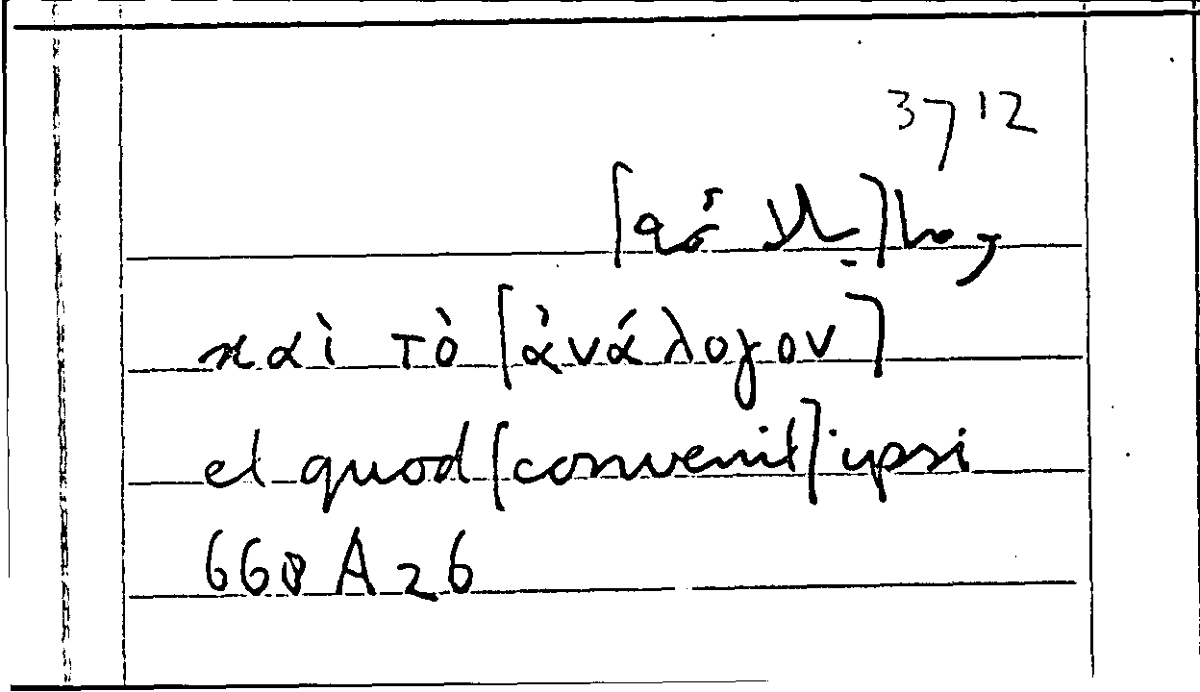 3712
καὶ τὸ [ἀνάλογον]
et quod [convenit] ipsi
668 A 26